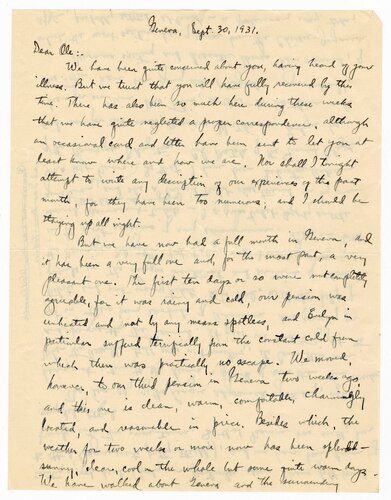 Geneva, Sept. 30, 1931.
Dear Ole:.
We have been quite concerned about you, having heard of your
illness. But we trust that you will have fully recovered by this
time. There has also been so much here during these weeks
that we have quite neglected a proper correspondence, although
an occasional card and letter have been sent to let you at
least know where and how we are. Nor shall I tonight
attempt to write any description of our experiences of the past
month, for they have been too numerous, and I should be
staying up all night.
But we have now had a full month in Geneva, and
it has been a very full one and, for the most part, a very
pleasant one. The first ten days or so were not completely
agreeable, for it was rainy and cold, our pension was
unheated and not by any means spotless, and Evelyn in
particular suffered terrifically from the constant cold from
which there was practically no escape. We moved,
however, to our third pension in Geneva two weeks ago,
and this one is clean, warm, comfortable, charmingly
located, and reasonable in price. Besides which, the
weather for two weeks or more now has been splendid -
sunny, clear, cool on the whole but some quite warm days.
We have walked about Geneva and the surrounding